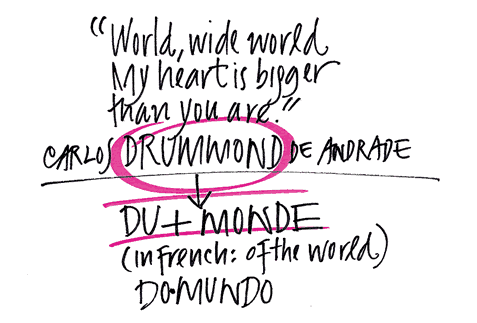 “World, wide world
My heart is bigger
than you are.”
CARLOS DRUMMOND DE ANDRADE
DU + MONDE
(in French: of the world)
DO•MUNDO